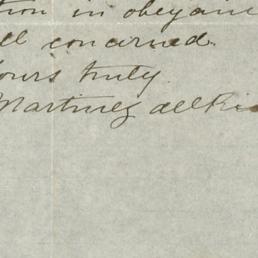 tion in obeyan
ll concerned.
ours truly
Martinez del Rio